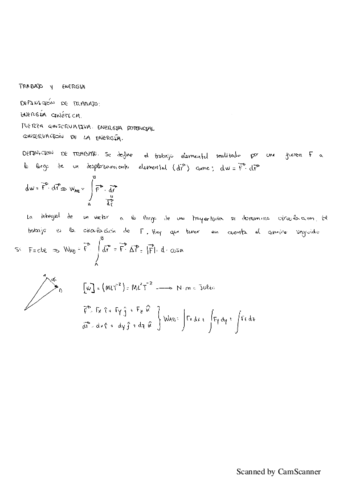 TRABAJO Y ENERGÍA
DEFINICIÓN DE TRABAJO.
ENERGÍA CINÉTICA.
FUERZA CONSERVATIVA. ENERGÍA POTENCIAL
CONSERVACIÓN DE LA ENERGÍA.
DEFINICIÓN DE TRABAJO. Se define el trabajo elemental realizado por una fuerza F a
lo largo de un desplazamiento elemental (dr) como: dw = F · dr
dw = F · dr ⇒ W_AB = ∫_A^B F · dr
La integral de un vector a lo largo de una trayectoria se denomina circulación. El
trabajo es la circulación de F. Hay que tener en cuenta el camino seguido
Si F = cte ⇒ W_AB = F ∫_A^B dr = F Δr = |F| · d · cos α
[W] = (MLT⁻²) = ML²T⁻² → N·m = Julio
F = Fx i + Fy j + Fz k
dr = dx i + dy j + dz k } W_AB = ∫Fx dx + ∫Fy dy + ∫Fz dz
Scanned by CamScanner